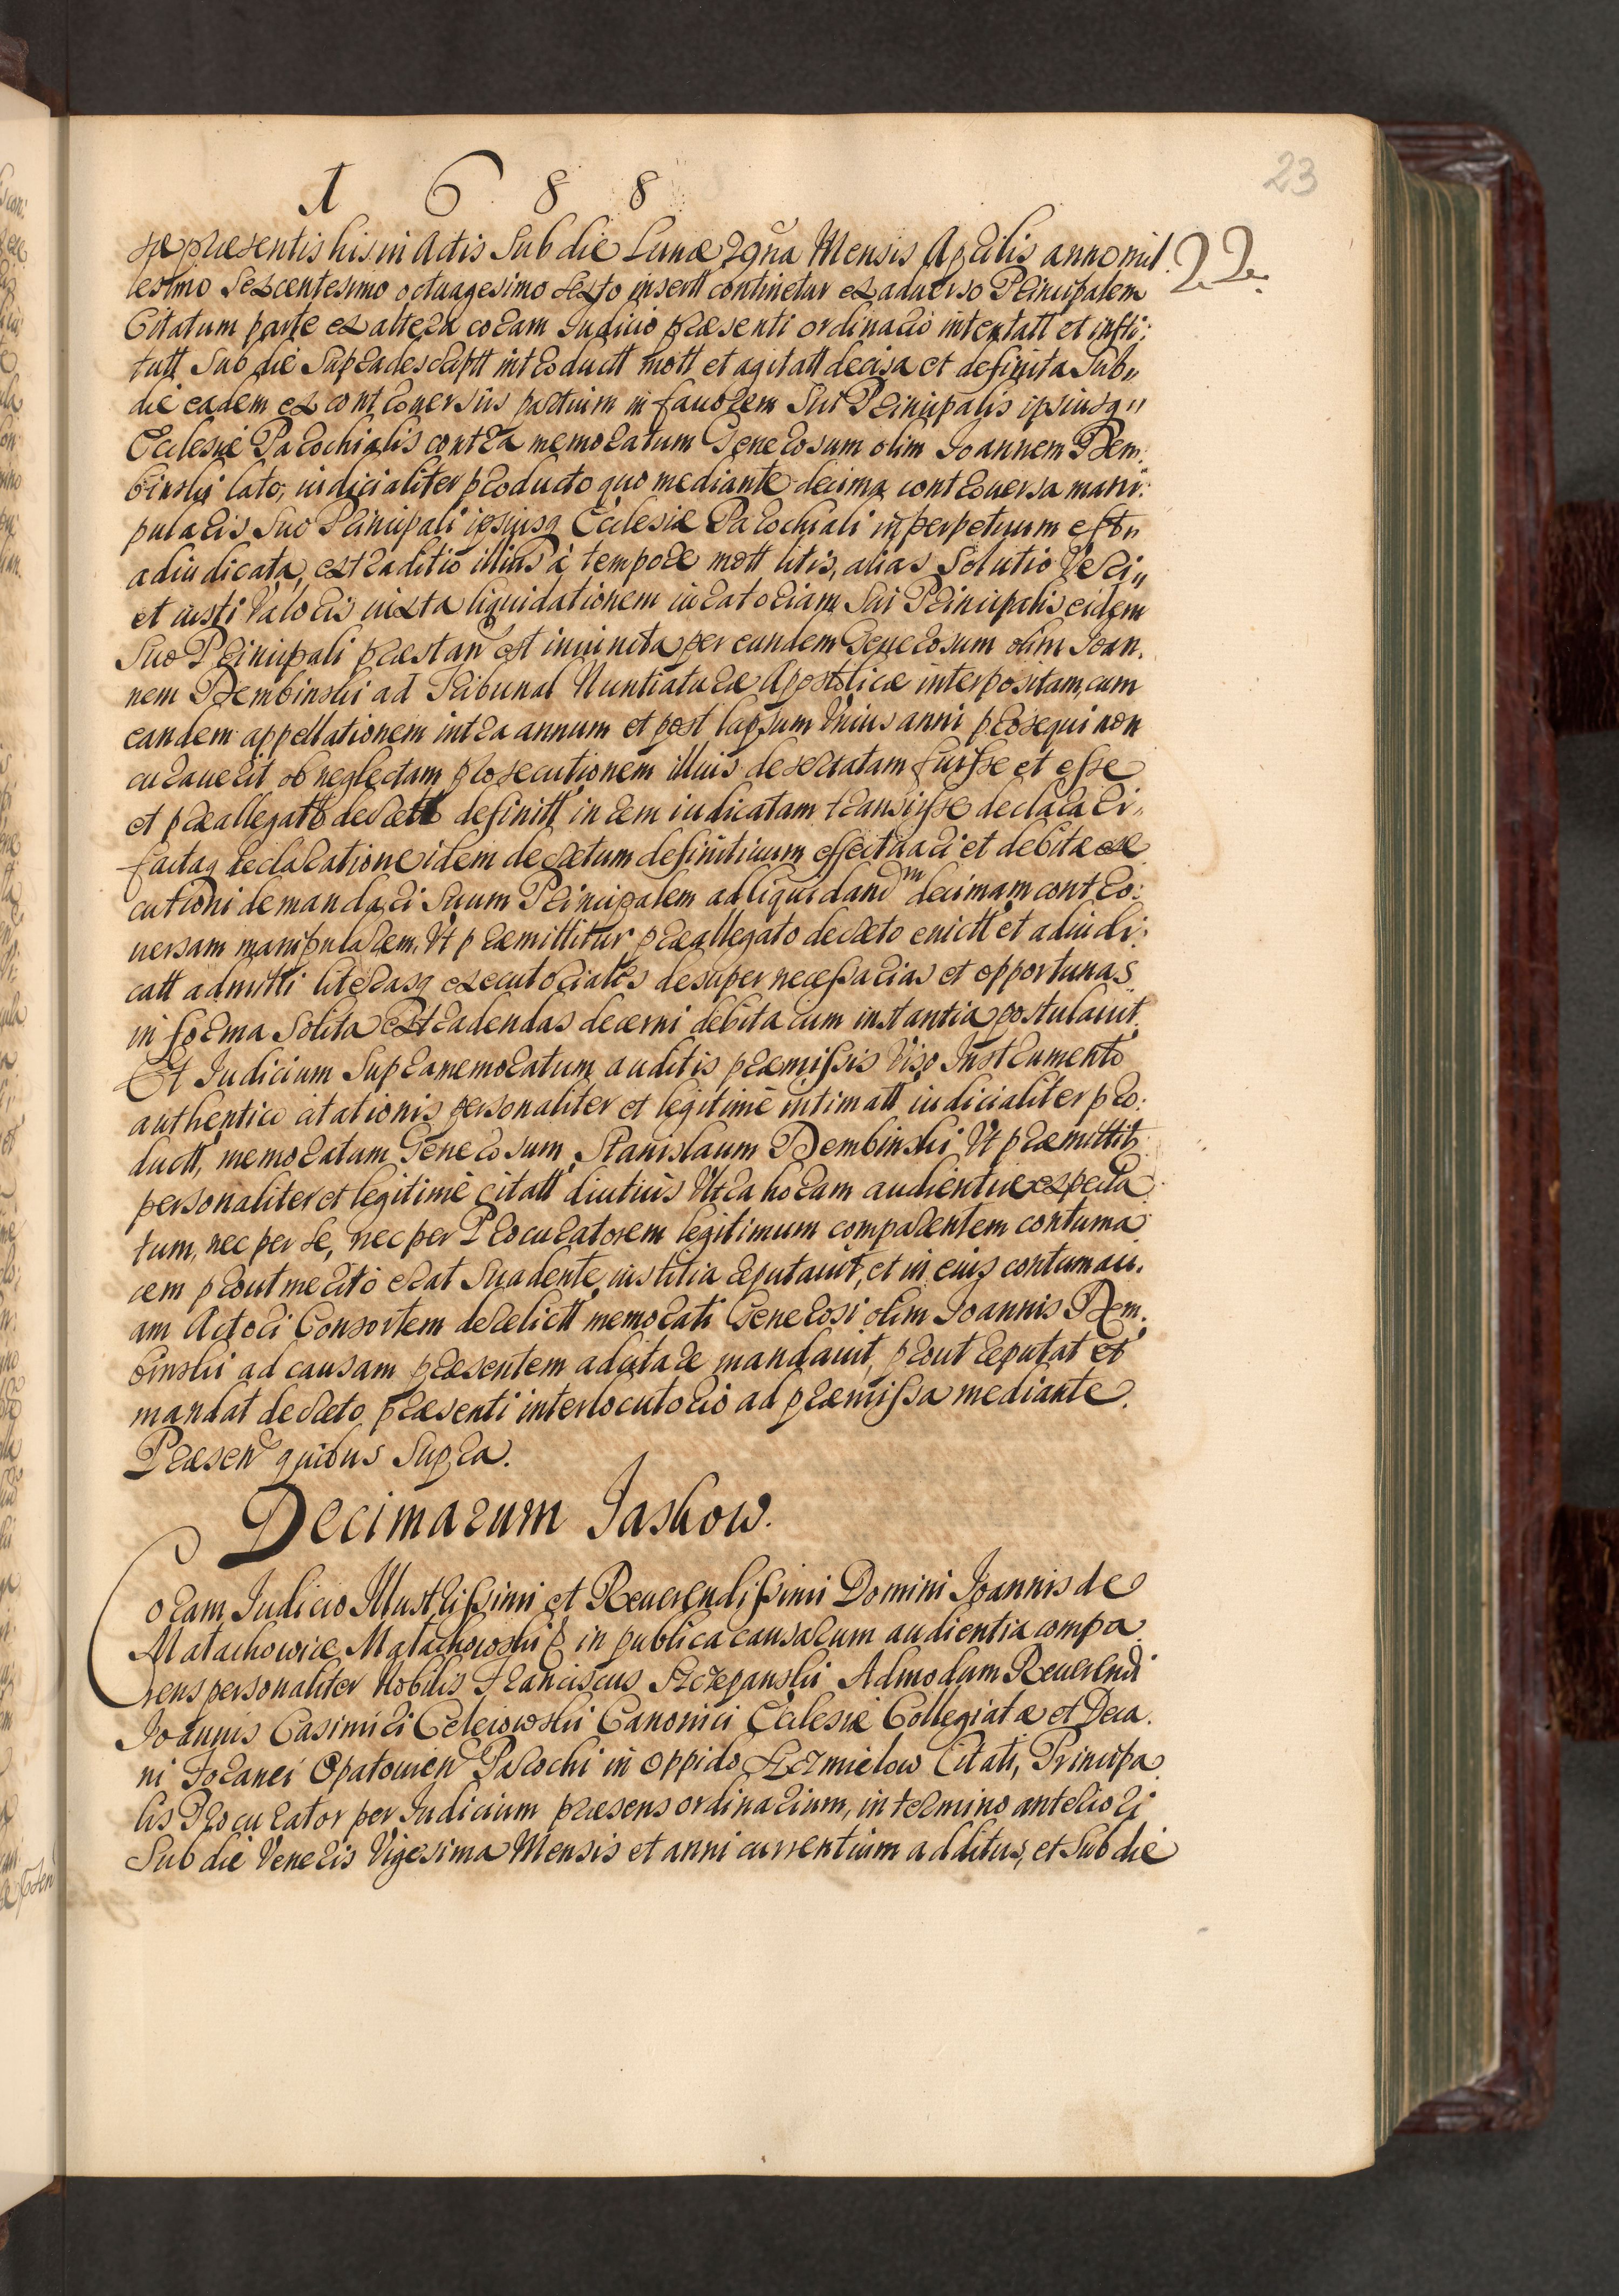 1688
23
22.
sæ præsentis his in Actis Sub die Lunæ 29na Mensis Aprilis anno mil.
lesimo Sexcentesimo octuagesimo sexto insertt continetur ex aduerso Principalem
Citatum parte ex altera coram Iudicio præsenti ordinario intentatt et insti:
tutt Sub die Supradescriptt introductt mott et agitatt decisa et definita Sub
die eadem ex controuersiis partium in fauorem Sui Principalis ipsiusq
Ecclesiæ Parochialis contra memoratum Generosum olim Joannem Dem:
binski lato, iudicialiter producto quo mediante decima controuersa mani:
pularis Suo Principali ipsiusq Ecclesiæ Parochiali in perpetuum est
adiudicata, extraditio illius à tempore mott litis, alias Solutio Veri
et iusti Valoris iuxta liquidationem iuratoriam Sui Principalis eidem
Suo Principali præstan est iniuncta per eundem Generosum olim Joan.
nem Dembinski ad Tribunal Nuntiaturæ Apostolicæ interpositam, cum
eandem appellationem intra annum et post lapsum Vnius anni prosequi non
curauerit ob neglectam prosecutionem illius desertatam fuisse et esse
et præallegatt decrett definitt in rem iudicatam transisse declarari
factaq declaratione idem decretum definitiuum effectuari et debitæ exe
cutioni demandari Suum Principalem ad liquidand m decimam contro:
uersam manipularem, Vt præmittitur præallegato decreto euictt et adiudi:
catt admitti literasq executoriales desuper necessarias et opportunas
in forma Solita extradendas decerni debita cum instantia postulauit
Et Iudicium Supramemoratum auditis præmissis Viso Instrumento
authentico citationis personaliter et legitimè intimatt iudicialiter pro:
ductt, memoratum Generosum Stanislaum Dembinski Vt præmittit
personaliter et legitimè citatt diutius Vltra horam audientiæ expecta
tum, nec per se, nec per Procuratorem legitimum comparentem contuma
cem prout meritò erat Suadente iustitia reputauit, et in eius contumaci.
am Actori Consortem derelictt memorati Generosi olim Joannis Dem.
binski ad causam præsentem adcitare mandauit, prout reputat et
mandat decreto præsenti interlocutorio ad præmissa mediante.
Præsen quibus Supra.
Decimarum Jaskow.
Coram Iudicio Illustrissimi et Reuerendissimi Domini Joannis de
Małachowice Małachowski in publica causarum audientia compa
rens personaliter Nobilis Franciscus Szczepanski Admodum Reuerendi
Joannis Casimiri Celejowski Canonici Ecclesiæ Collegiatæ et Deca.
ni Foranei Opatouien Parochi in oppido Szczmielow Citati, Principa
lis Procurator per Iudicium præsens ordinarium, in termino anteriori
Sub die Veneris Vigesima Mensis et anni currentium additus, et Sub die